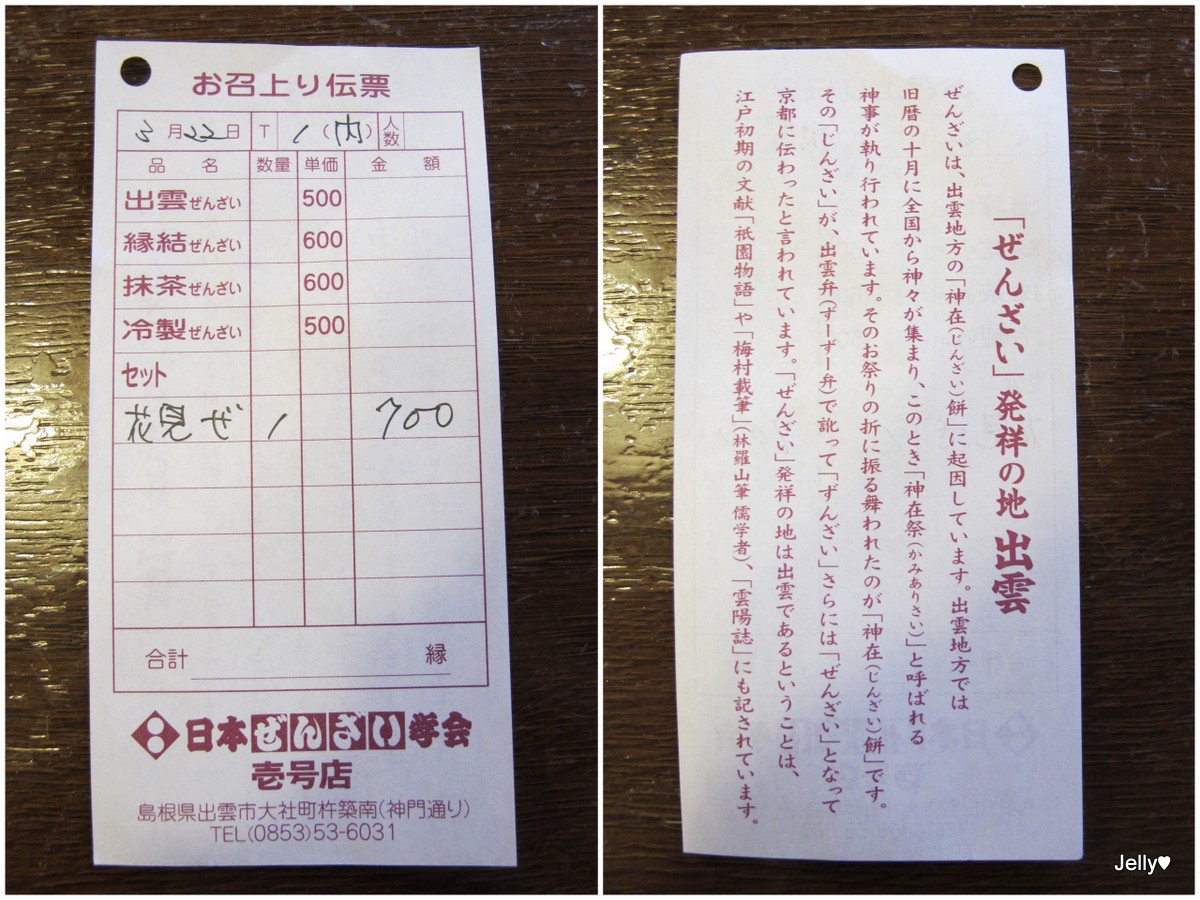 お召上り伝票
3月22日 T 1(内) 人数
品 名 数量 単価 金 額
出雲ぜんざい 500
縁結ぜんざい 600
抹茶ぜんざい 600
冷製ぜんざい 500
セット
花見ぜ 1 700
合計 縁
日本ぜんざい学会
壱号店
島根県出雲市大社町杵築南(神門通り)
TEL(0853)53-6031
「ぜんざい」発祥の地 出雲
ぜんざいは、出雲地方の「神在(じんざい)餅」に起因しています。出雲地方では
旧暦の十月に全国から神々が集まり、このとき「神在祭(かみありさい)」と呼ばれる
神事が執り行われています。そのお祭りの折に振る舞われたのが「神在(じんざい)餅」です。
その「じんざい」が、出雲弁(ずーずー弁)で訛って「ずんざい」さらには「ぜんざい」となって
京都に伝わったと言われています。「ぜんざい」発祥の地は出雲であるということは、
江戸初期の文献「祇園物語」や「梅村載筆」(林羅山筆 儒学者)、「雲陽誌」にも記されています。
Jelly♥